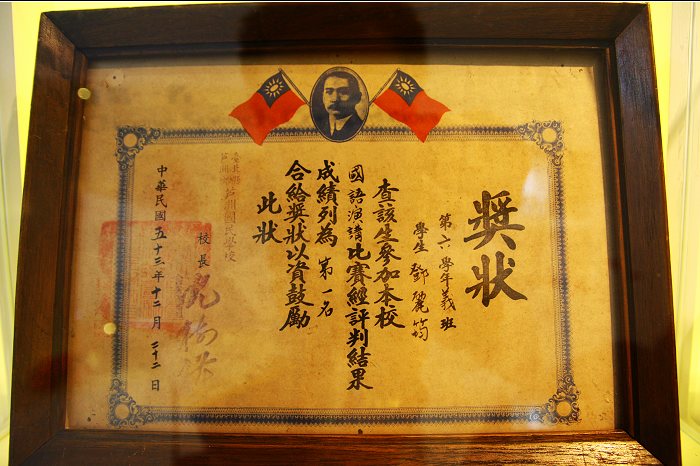 獎狀
第六學年義班
學生 鄧麗筠
查該生參加本校
國語演講比賽經評判結果
成績列為第一名
合給獎狀以資鼓勵
此狀
蘆洲國民學校
校長
中華民國五十三年十二月二十二日